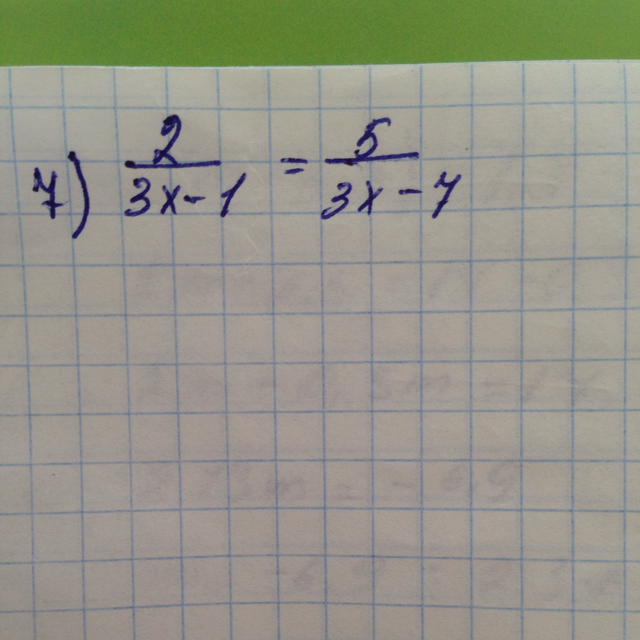 7) 2/(3x-1) = 5/(3x-7)